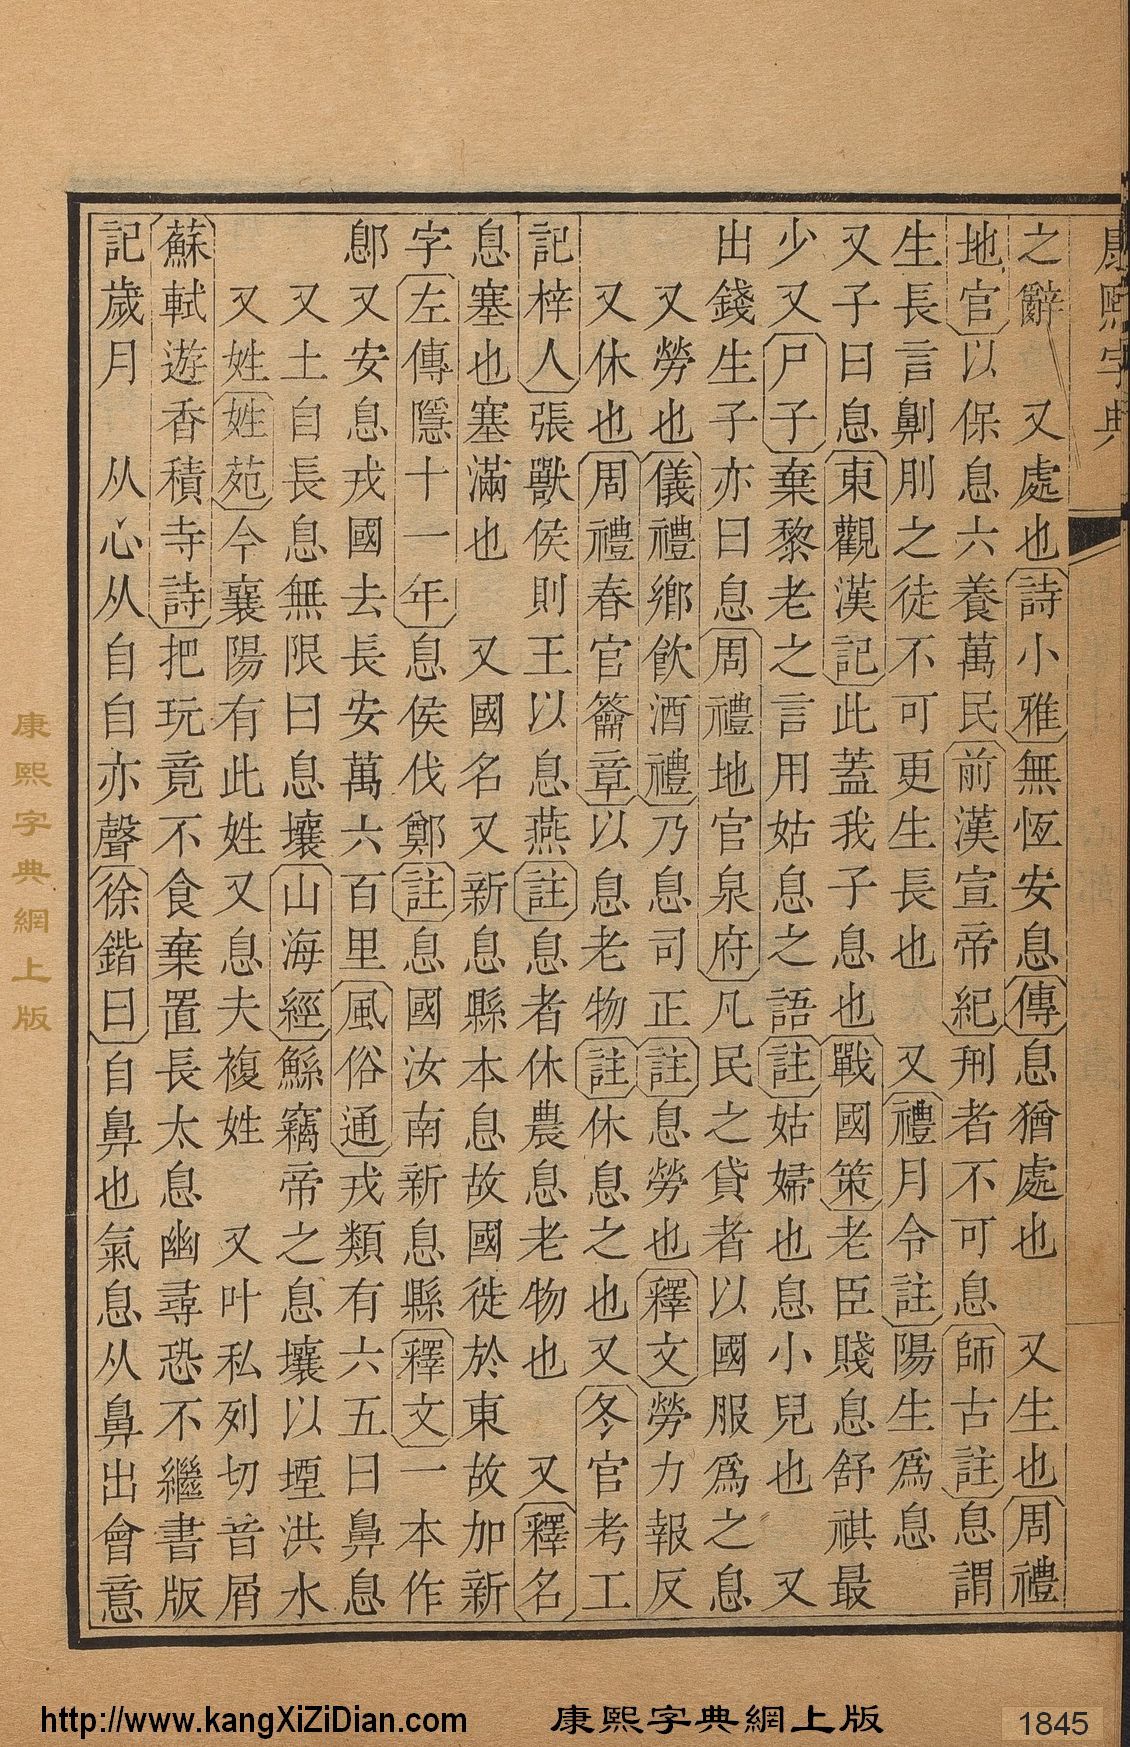 康熙字典
之辭　又處也詩小雅無恆安息傳息猶處也　又生也周禮
地官以保息六養萬民前漢宣帝紀刑者不可息師古註息謂
生長言劓刖之徒不可更生長也　又禮月令註陽生爲息
又子曰息東觀漢記此蓋我子息也戰國策老臣賤息舒祺最
少又尸子棄黎老之言用姑息之語註姑婦也息小兒也　又
出錢生子亦曰息周禮地官泉府凡民之貸者以國服爲之息
又勞也儀禮鄉飮酒禮乃息司正註息勞也釋文勞力報反
又休也周禮春官籥章以息老物註休息之也又冬官考工
記梓人張獸侯則王以息燕註息者休農息老物也　又釋名
息塞也塞滿也　又國名又新息縣本息故國徙於東故加新
字左傳隱十一年息侯伐鄭註息國汝南新息縣釋文一本作
鄎又安息戎國去長安萬六百里風俗通戎類有六五曰鼻息
又土自長息無限曰息壤山海經鯀竊帝之息壤以堙洪水
又姓姓苑今襄陽有此姓又息夫複姓　又叶私列切音屑
蘇軾遊香積寺詩把玩竟不食棄置長太息幽尋恐不繼書版
記歲月　从心从自自亦聲徐鍇曰自鼻也氣息从鼻出會意
康熙字典網上版
http://www.kangXiZiDian.com
康熙字典網上版
1845